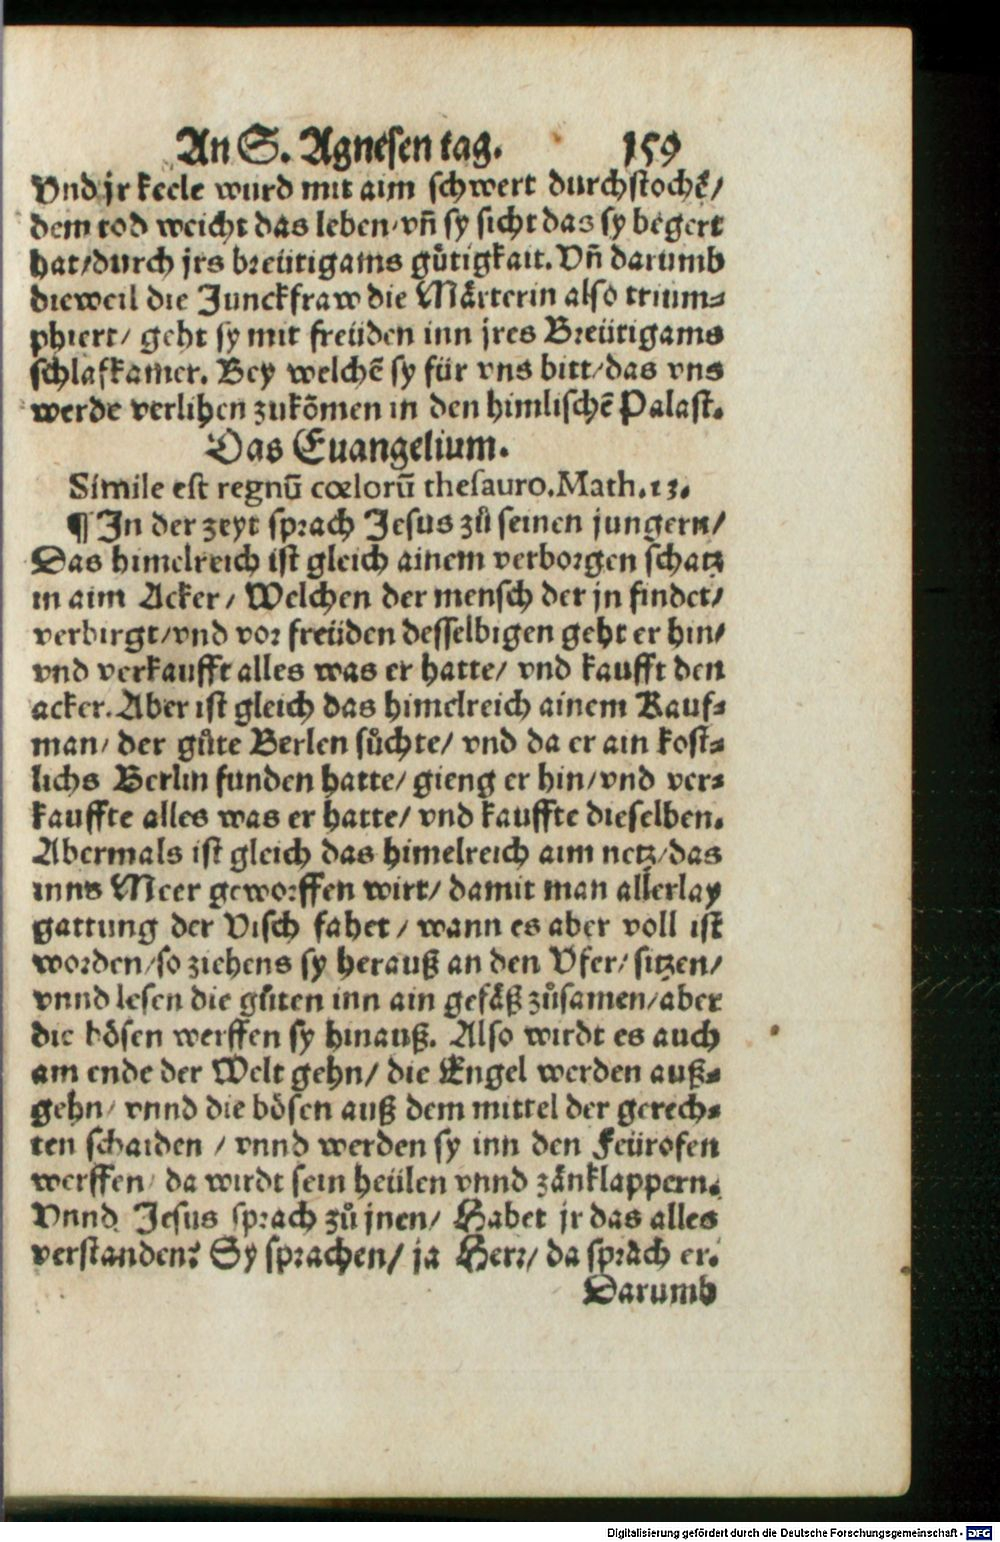 An S. Agnesen tag. 159
Vnd jr keele wurd mit aim schwert durchstochẽ/
dem tod weicht das leben/vñ sy sicht das sy begert
hat/durch jrs breütigams gůtigkait. Vñ darumb
dieweil die Junckfraw die Märterin also trium⸗
phiert/ geht sy mit freüden inn jres Breütigams
schlafkamer. Bey welchẽ sy für vns bitt/das vns
werde verlihen zukõmen in den himlischẽ Palast.
Das Euangelium.
Simile est regnũ cœlorũ thesauro.Math.13.
¶ In der zeyt sprach Jesus zů seinen jungern/
Das himelreich ist gleich ainem verborgen schatz
in aim Acker/ Welchen der mensch der jn findet/
verbirgt/vnd vor freüden desselbigen geht er hin/
vnd verkaufft alles was er hatte/ vnd kaufft den
acker. Aber ist gleich das himelreich ainem Kauf⸗
man/ der gůte Berlen sůchte/ vnd da er ain kost⸗
lichs Berlin funden hatte/ gieng er hin/vnd ver⸗
kauffte alles was er hatte/ vnd kauffte dieselben.
Abermals ist gleich das himelreich aim netz/das
inns Meer geworffen wirt/ damit man allerlay
gattung der Visch fahet/ wann es aber voll ist
worden/so ziehens sy herauß an den Vfer/ sitzen/
vnnd lesen die gůten inn ain gefäß zůsamen/aber
die bösen werffen sy hinauß. Also wirdt es auch
am ende der Welt gehn/ die Engel werden auß⸗
gehn/ vnnd die bösen auß dem mittel der gerech⸗
ten schaiden / vnnd werden sy inn den Feürofen
werffen/ da wirdt sein heülen vnnd zänklappern.
Vnnd Jesus sprach zů jnen/ Habet jr das alles
verstanden? Sy sprachen/ ja Herr/ da sprach er.
Darumb
Digitalisierung gefördert durch die Deutsche Forschungsgemeinschaft - DFG